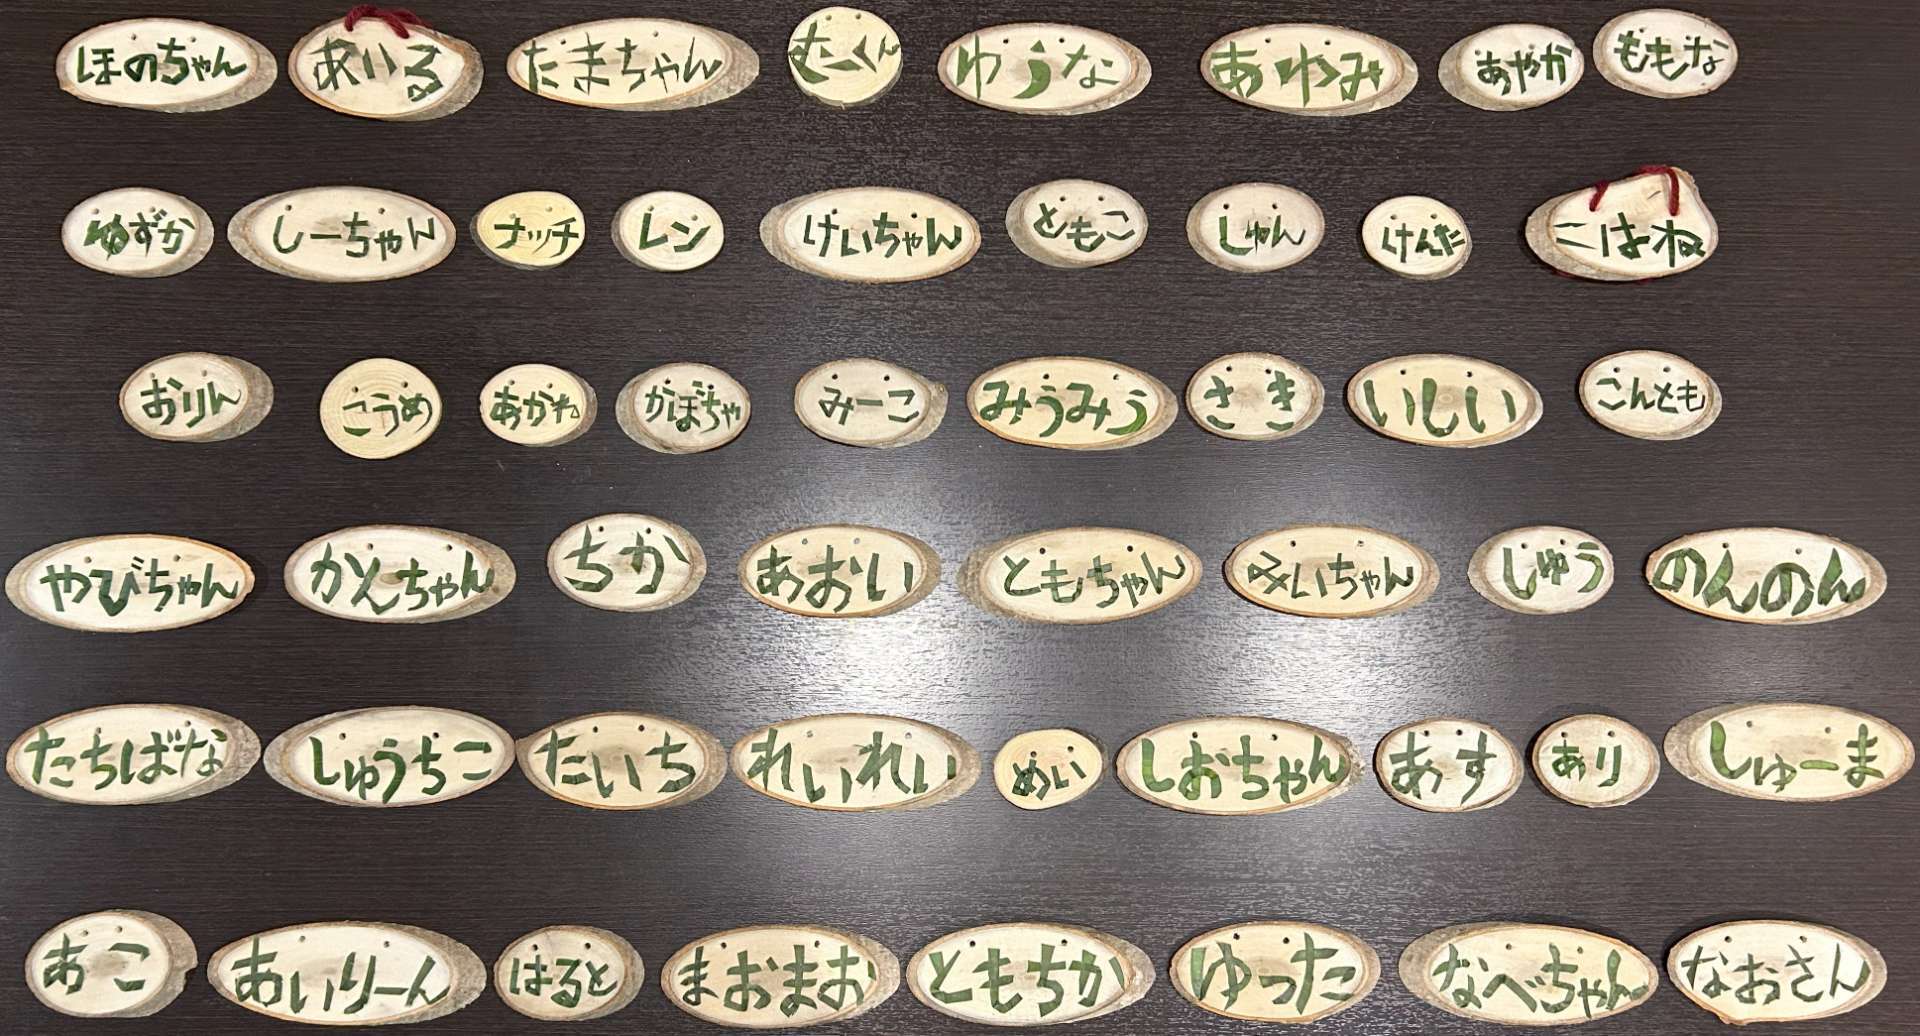 ほのちゃん あいる たまちゃん むーくん ゆうな あゆみ あやか ももな
ゆずか しーちゃん ナッチ レン けいちゃん ともこ しゅん けんた こはね
おりん こうめ あかね かぼちゃ みーこ みうみう さき いしい こんとも
やびちゃん かんちゃん ちか あおい ともちゃん みいちゃん しゅう のんのん
たちばな しゅうちこ たいち れいれい めい しおちゃん あす あり しゅーま
あこ あいりーん はると まおまお ともちか ゆった なべちゃん なおさん